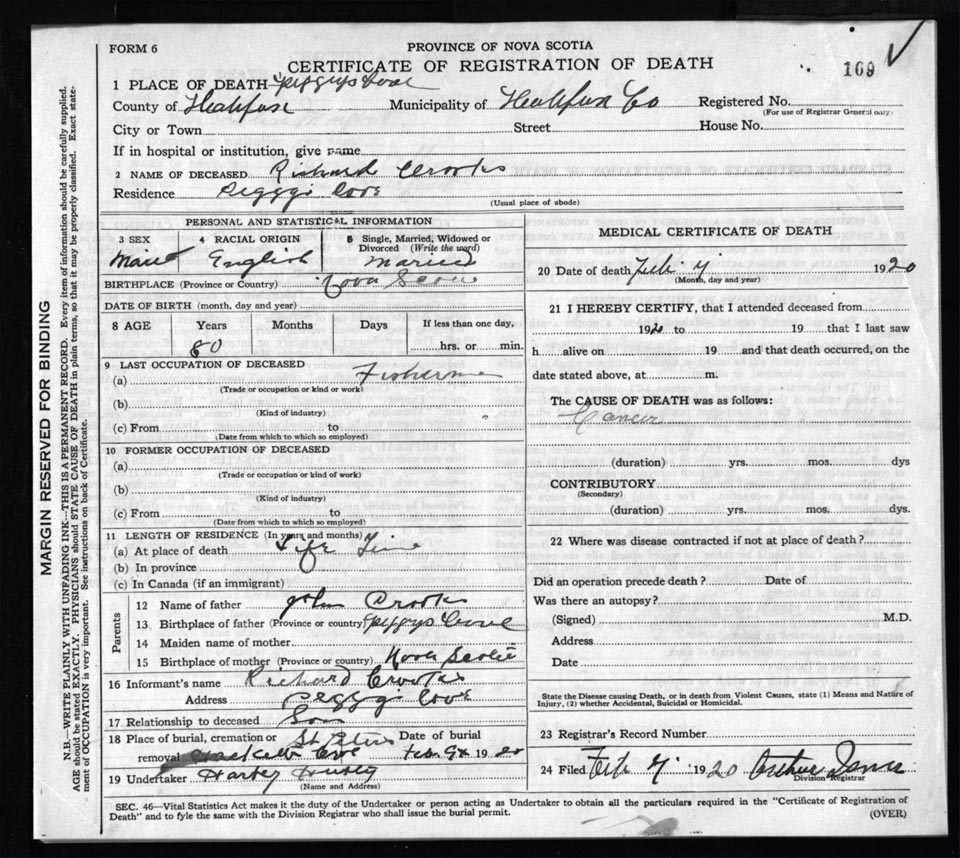 FORM 6
PROVINCE OF NOVA SCOTIA
CERTIFICATE OF REGISTRATION OF DEATH
169
1 PLACE OF DEATH Peggys Cove
County of Halifax Municipality of Halifax Co Registered No.
(For use of Registrar General only)
City or Town Street House No.
If in hospital or institution, give name
2 NAME OF DECEASED Richard Crooks
Residence Peggys Cove
(Usual place of abode)
PERSONAL AND STATISTICAL INFORMATION
3 SEX 4 RACIAL ORIGIN 5 Single, Married, Widowed or Divorced (Write the word)
English Married
BIRTHPLACE (Province or Country) Nova Scotia
DATE OF BIRTH (month, day and year)
8 AGE Years Months Days If less than one day,
80 hrs. or min.
9 LAST OCCUPATION OF DECEASED
(a) Fisherman
(Trade or occupation or kind or work)
(b)
(Kind of industry)
(c) From to
(Date from which to which so employed)
10 FORMER OCCUPATION OF DECEASED
(a)
(Trade or occupation or kind of work)
(b)
(Kind of industry)
(c) From to
(Date from which to which so employed)
11 LENGTH OF RESIDENCE (In years and months)
(a) At place of death Life Time
(b) In province
(c) In Canada (if an immigrant)
Parents
12 Name of father John Crooks
13 Birthplace of father (Province or country) Peggys Cove
14 Maiden name of mother
15 Birthplace of mother (Province or country) Nova Scotia
16 Informant's name Richard Crooks
Address Peggys Cove
17 Relationship to deceased Son
18 Place of burial, cremation or St Peters Date of burial
removal Cove Feb. 9 1920
19 Undertaker Harvey
(Name and Address)
MEDICAL CERTIFICATE OF DEATH
20 Date of death Feb 7 1920
(Month, day and year)
21 I HEREBY CERTIFY, that I attended deceased from
1920 to 19 that I last saw
h alive on 19 and that death occurred, on the
date stated above, at m.
The CAUSE OF DEATH was as follows:
Cancer
(duration) yrs. mos. dys
CONTRIBUTORY
(Secondary)
(duration) yrs. mos. dys.
22 Where was disease contracted if not at place of death?
Did an operation precede death? Date of
Was there an autopsy?
(Signed) M.D.
Address
Date
State the Disease causing Death, or in death from Violent Causes, state (1) Means and Nature of
Injury, (2) whether Accidental, Suicidal or Homicidal.
23 Registrar's Record Number
24 Filed Feb 7 1920
Division Registrar
SEC. 46—Vital Statistics Act makes it the duty of the Undertaker or person acting as Undertaker to obtain all the particulars required in the "Certificate of Registration of
Death" and to fyle the same with the Division Registrar who shall issue the burial permit. (OVER)
MARGIN RESERVED FOR BINDING
N.B.—WRITE PLAINLY WITH UNFADING INK—THIS IS A PERMANENT RECORD. Every item of information should be carefully supplied.
AGE should be stated EXACTLY. PHYSICIANS should STATE CAUSE OF DEATH in plain terms, so that it may be properly classified. Exact state-
ment of OCCUPATION is very important. See instructions on back of Certificate.